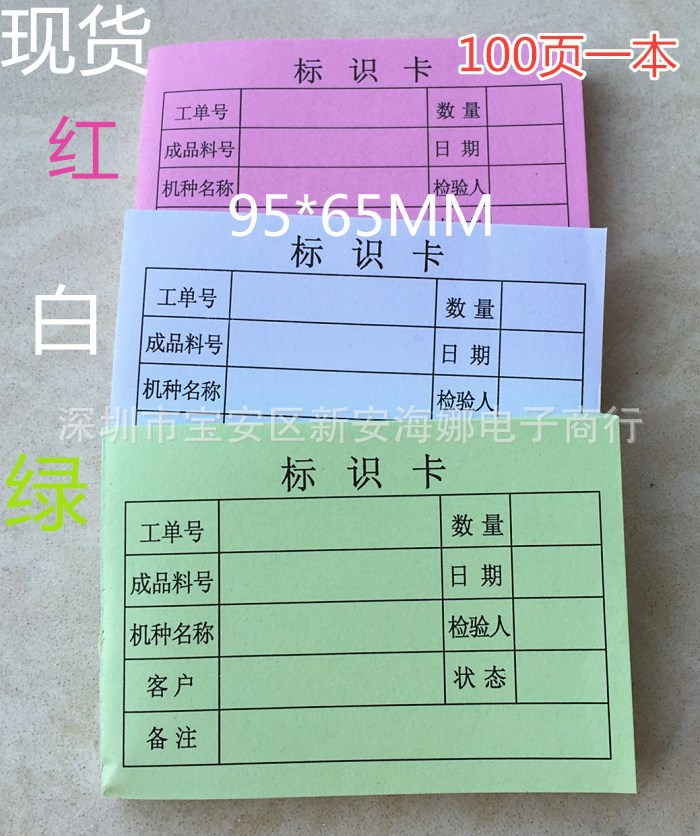 现货
100页一本
红
标 识 卡
工单号 数 量
成品料号 日 期
机种名称 检验人
95*65MM
白
标 识 卡
工单号 数 量
成品料号 日 期
机种名称 检验人
深圳市宝安区新安海娜电子商行
绿
标 识 卡
工单号 数 量
成品料号 日 期
机种名称 检验人
客 户 状 态
备 注